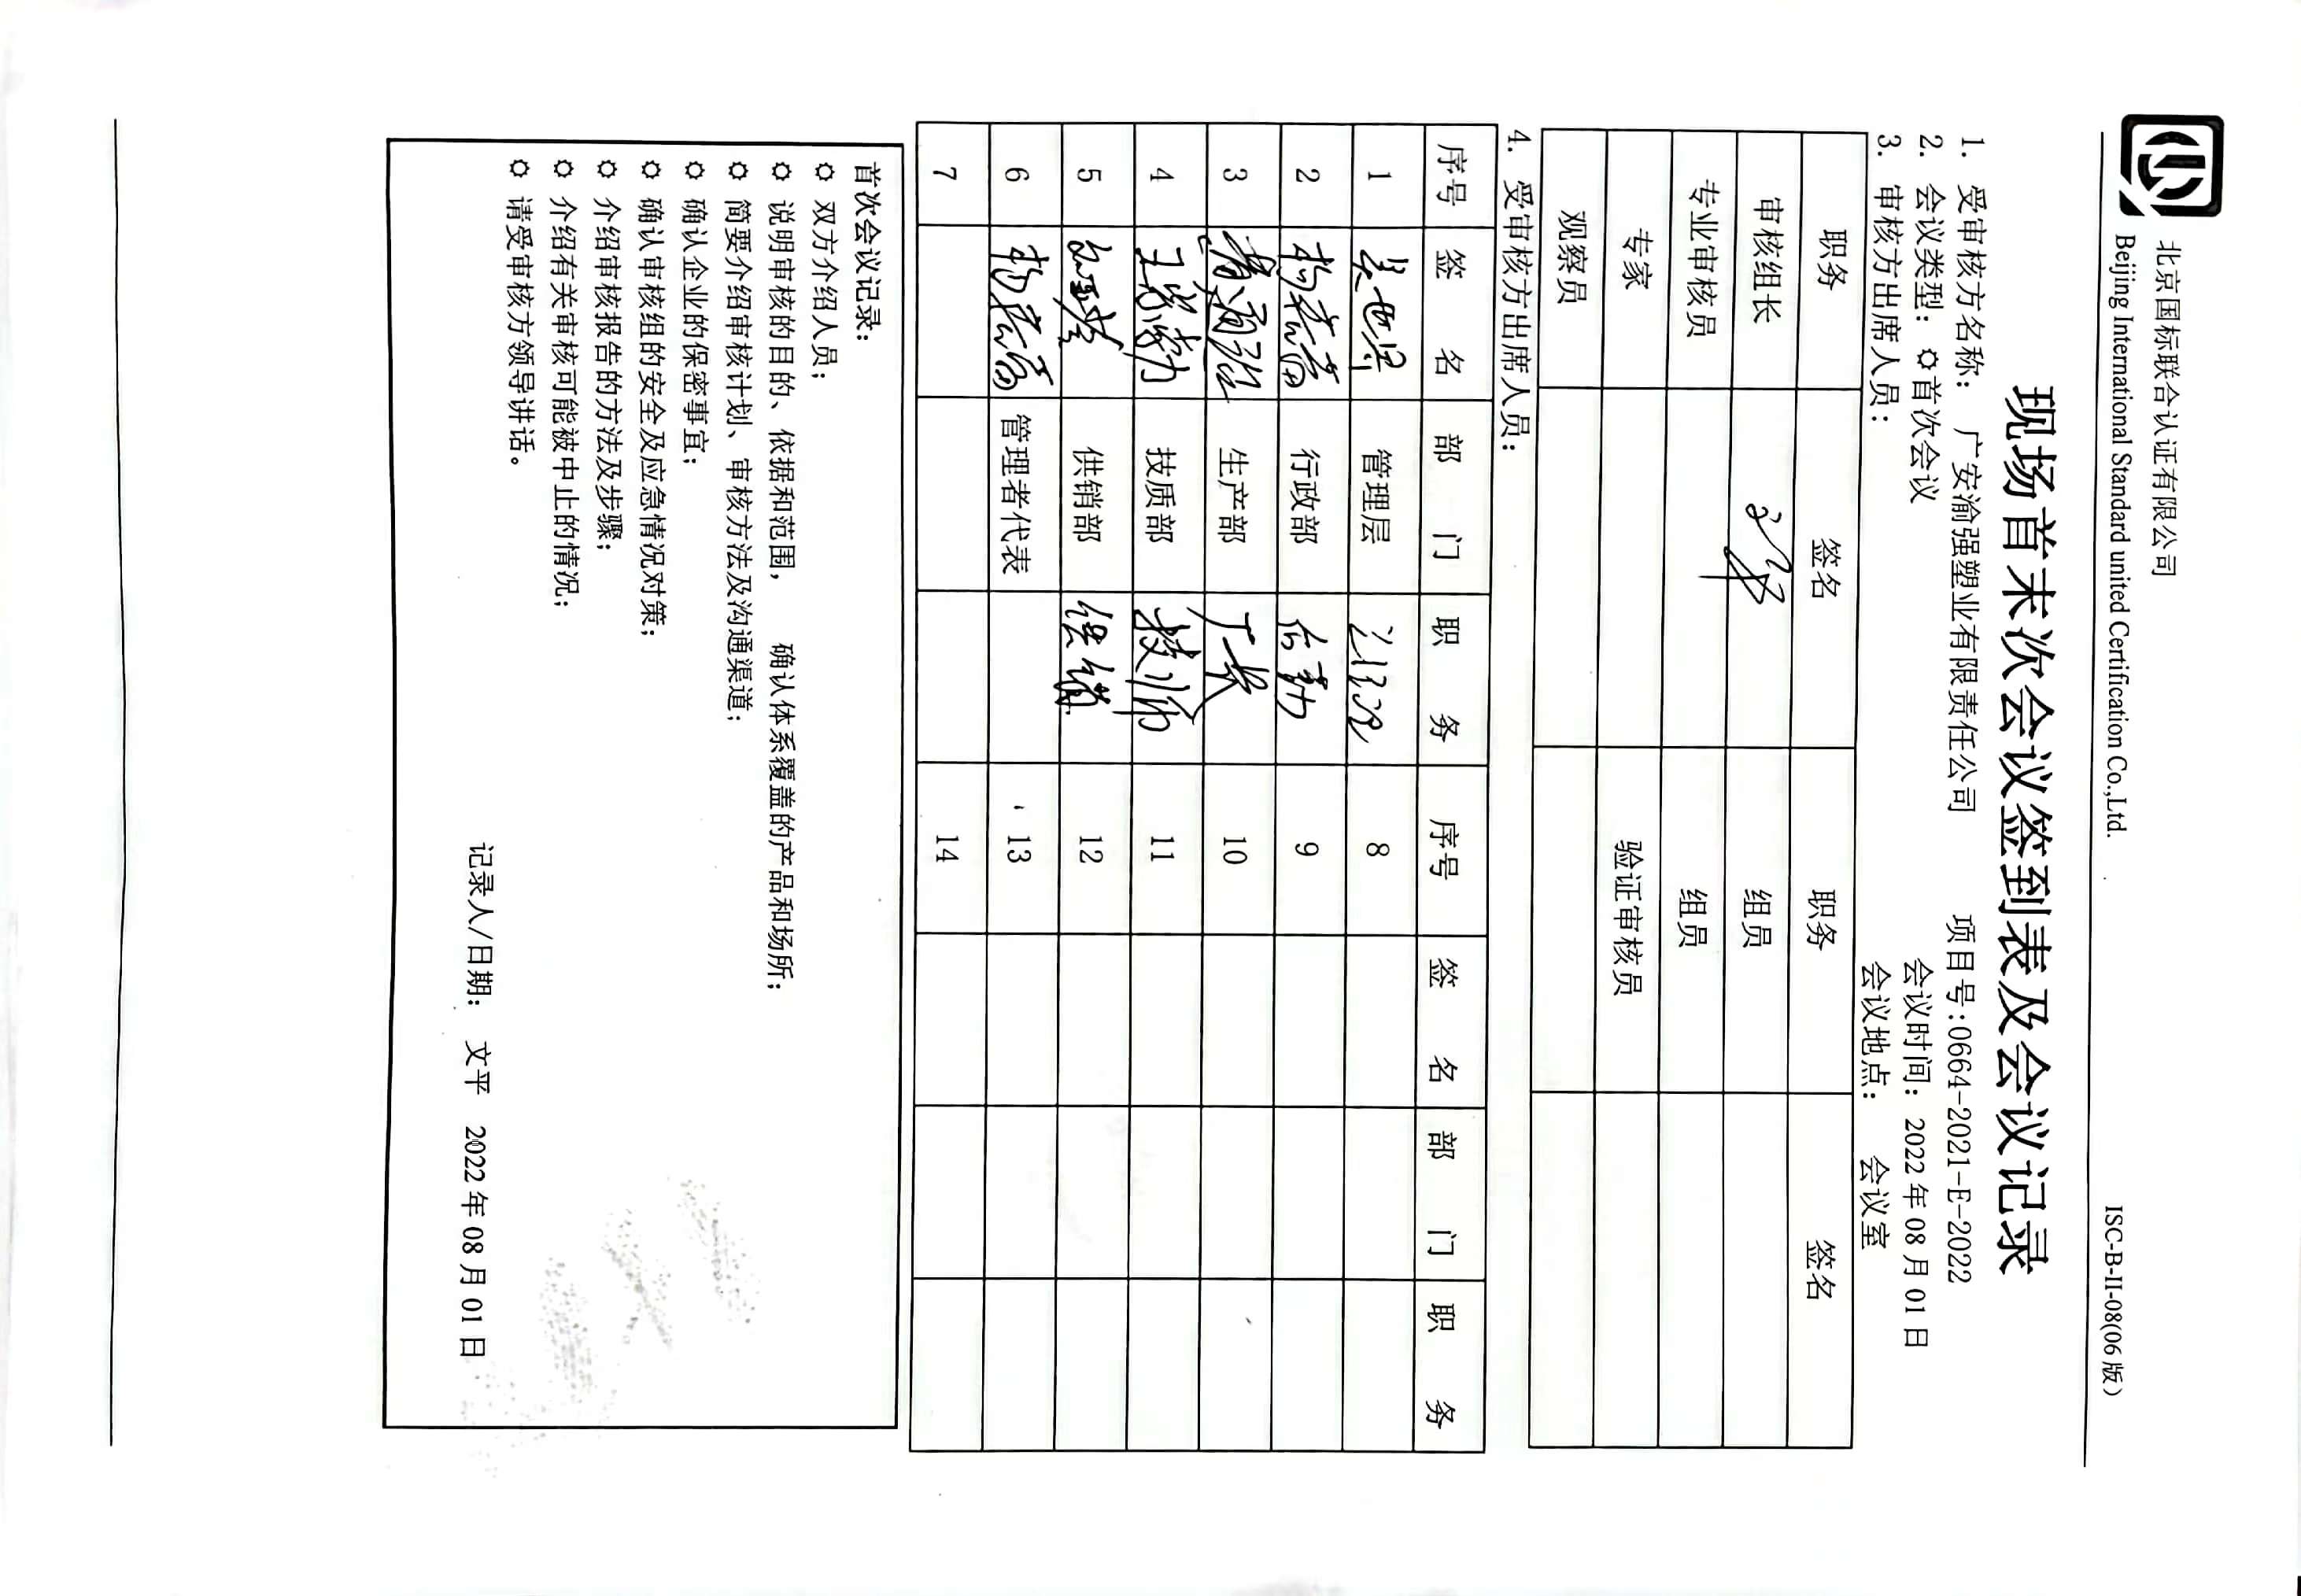 北京国标联合认证有限公司
Beijing International Standard united Certification Co.,Ltd. ISC-B-II-08(06版)
现场首末次会议签到表及会议记录
1. 受审核方名称： 广安渝强塑业有限责任公司 项目号:0664-2021-E-2022
2. 会议类型： 首次会议 会议时间： 2022年08月01日
3. 审核方出席人员： 会议地点： 会议室
职务 签名 职务 签名
审核组长 组员
专业审核员 组员
专家 验证审核员
观察员
4. 受审核方出席人员：
序号 签 名 部 门 职 务 序号 签 名 部 门 职 务
1 管理层 8
2 行政部 9
3 生产部 厂长 10
4 技质部 11
5 供销部 供销 12
6 管理者代表 13
7 14
首次会议记录：
双方介绍人员；
说明审核的目的、依据和范围， 确认体系覆盖的产品和场所；
简要介绍审核计划、审核方法及沟通渠道；
确认企业的保密事宜；
确认审核组的安全及应急情况对策；
介绍审核报告的方法及步骤；
介绍有关审核可能被中止的情况；
请受审核方领导讲话。
记录人/日期： 文平 2022年08月01日